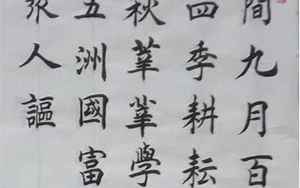 間九月百
四季耕耘
秋莘莘學
五洲國富
人謳